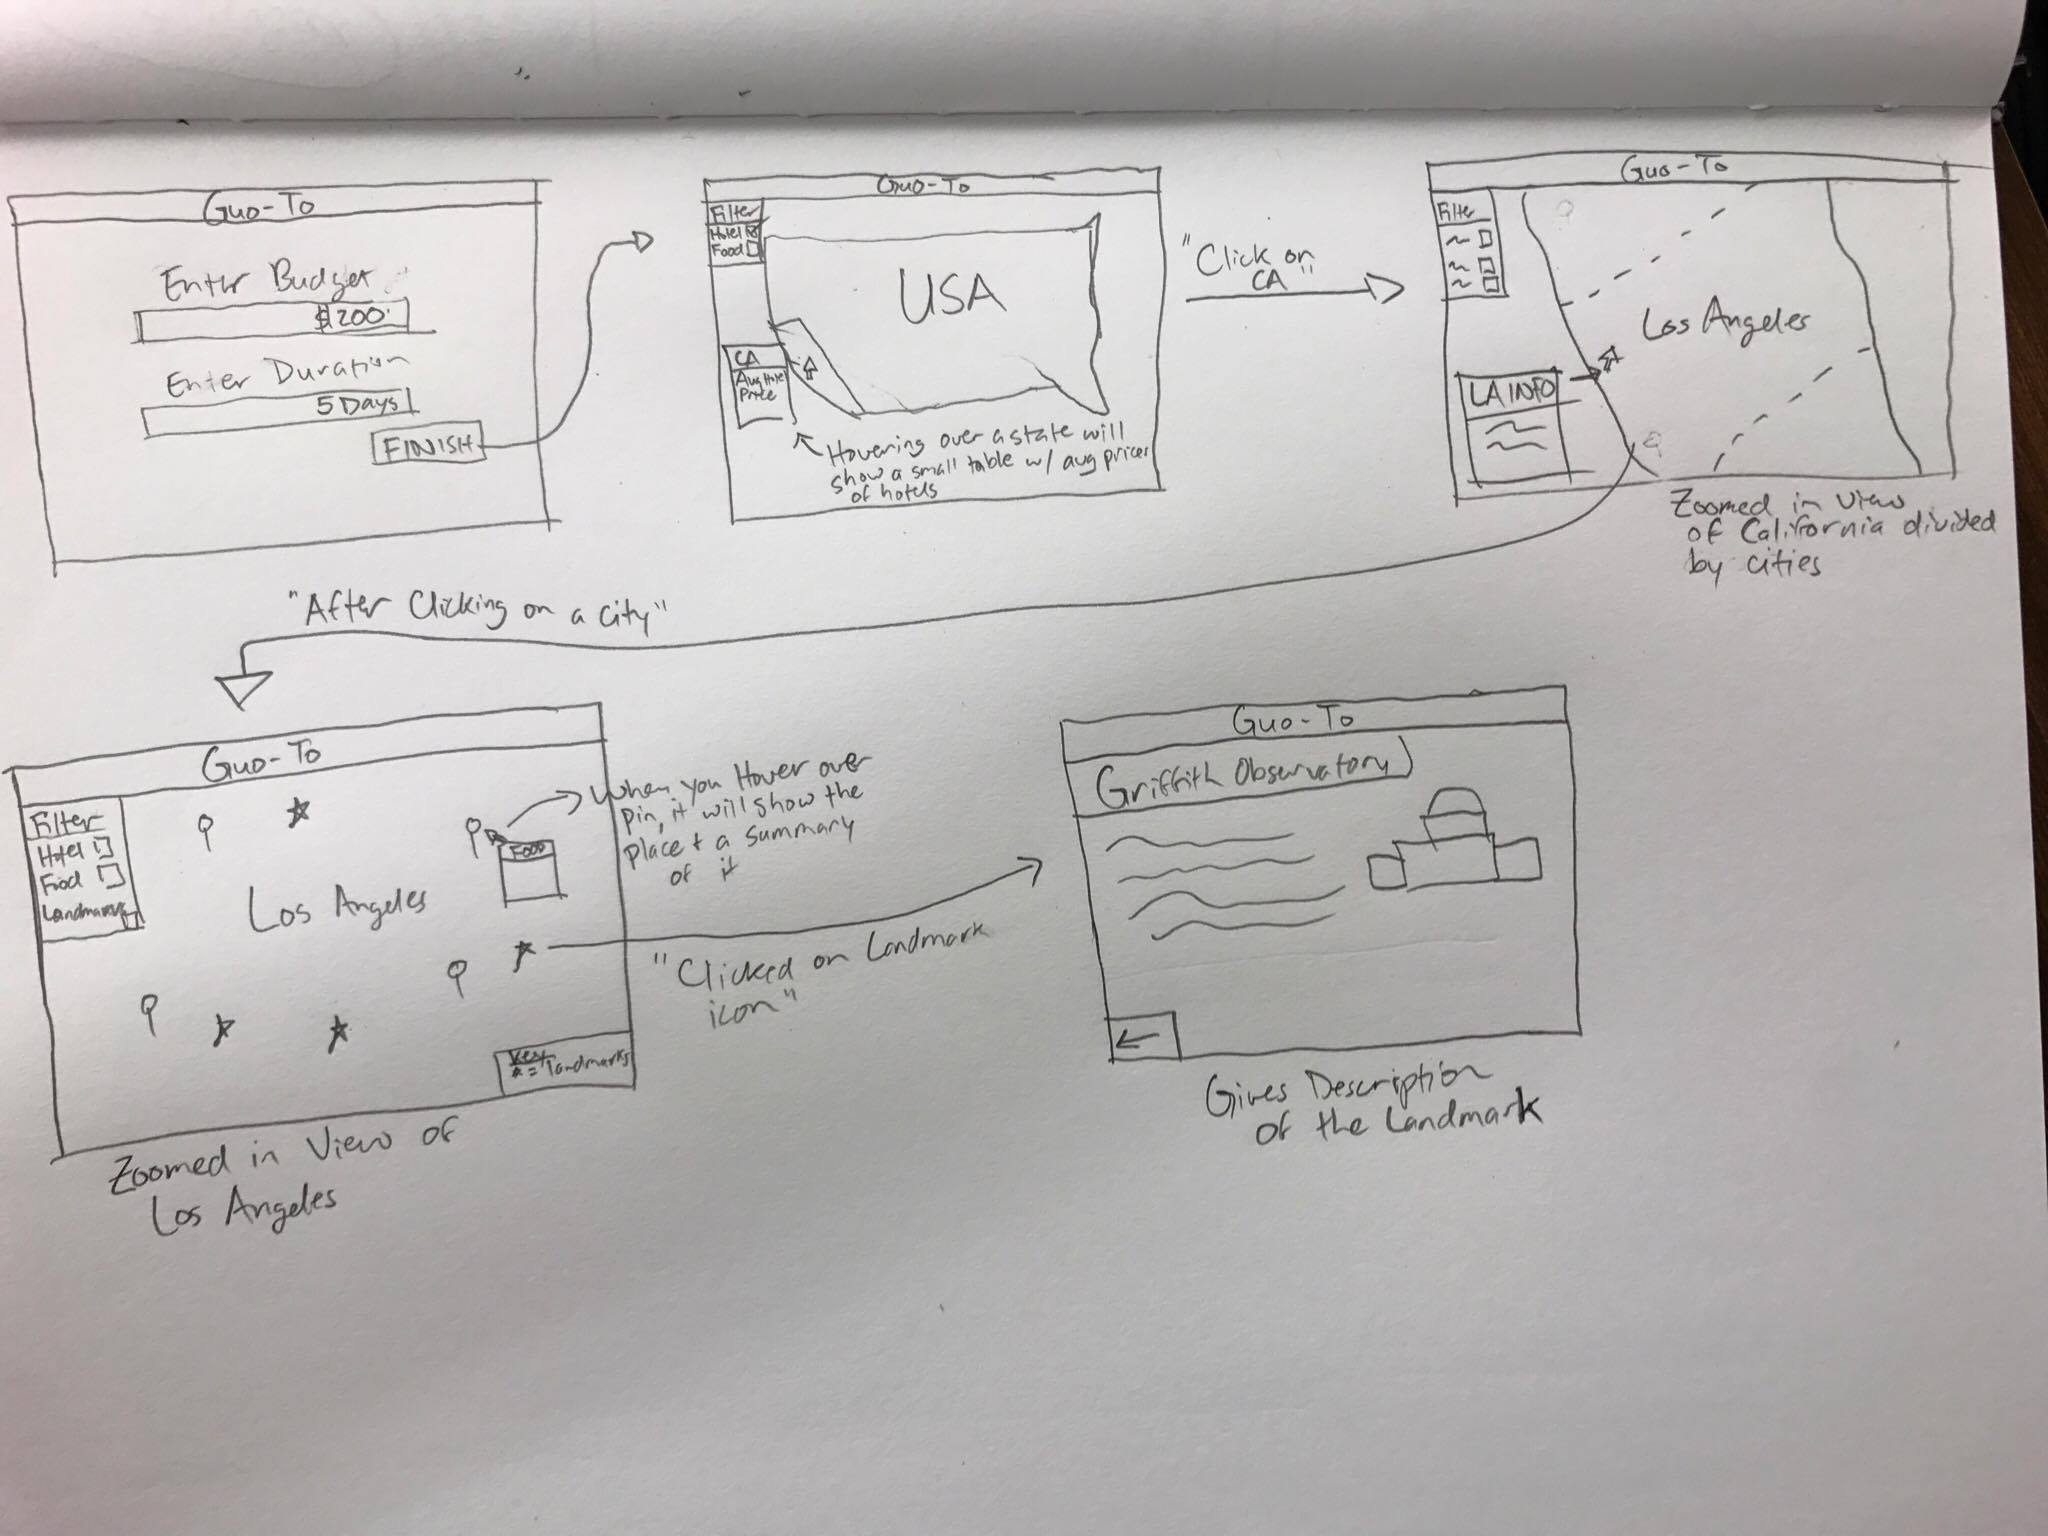 Guo-To
Enter Budget
$1200
Enter Duration
5 Days
FINISH
Guo-To
Filter
Hotel
Food
USA
CA
Avg Hotel
Price
Hovering over a state will
show a small table w/ avg prices
of hotels
"Click on
CA"
Guo-To
Filter
Los Angeles
LA INFO
Zoomed in view
of California divided
by cities
"After Clicking on a city"
Guo-To
Filter
Hotel
Food
Landmarks
Los Angeles
FOOD
Key
* = landmarks
When you Hover over
pin, it will show the
place + a summary
of it
"Clicked on Landmark
icon"
Zoomed in View of
Los Angeles
Guo-To
Griffith Observatory
Gives Description
of the Landmark